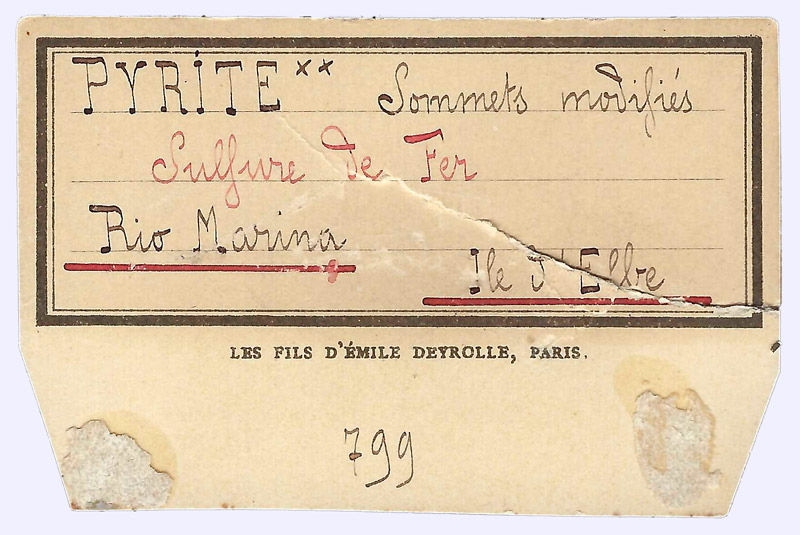 PYRITE ×× Sommets modifiés
Sulfure de Fer
Rio Marina
Ile d'Elbe
LES FILS D'ÉMILE DEYROLLE, PARIS.
799